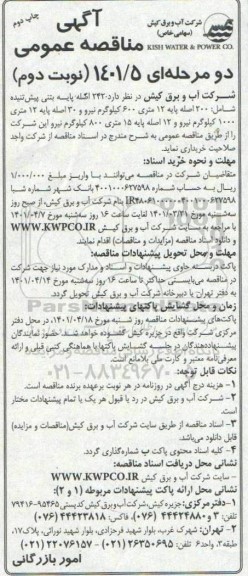 چاپ دوم
آگهی
شرکت آب و برق کیش
(سهامی خاص)
مناقصه عمومی
KISH WATER & POWER CO.
دو مرحله‌ای ۱۴۰۱/۵ (نوبت دوم)
شرکت آب و برق کیش در نظر دارد: ۲۴۲ اصله پایه بتنی پیش‌تنیده
شامل: ۲۰۰ اصله پایه ۱۲ متری ۶۰۰ کیلوگرم نیرو و ۳۰ اصله پایه ۱۲ متری
۱۰۰۰ کیلوگرم نیرو و ۱۲ اصله پایه ۱۵ متری ۸۰۰ کیلوگرم نیروی این شرکت
را از طریق مناقصه عمومی به شرح مندرج در اسناد مناقصه از شرکت واجد
صلاحیت خریداری نماید.
مهلت و نحوه خرید اسناد:
متقاضیان شرکت در مناقصه می‌توانند با واریز مبلغ ۱/۰۰۰/۰۰۰
ریال به حساب شماره ۴۰۰۱۰۰۰۶۲۷۵۹۸ بانک شهر شماره شبا
بنام شرکت آب و برق کیش، از صبح روز
سه‌شنبه مورخ ۱۴۰۱/۰۳/۳۱ لغایت ساعت ۱۶ روز سه‌شنبه مورخ ۱۴۰۱/۰۴/۷
با مراجعه به سایت شرکت آب و برق کیش WWW.KWPCO.IR
و دانلود اسناد مناقصه (مزایدات و مناقصات) اقدام نمایند.
مهلت و محل تحویل پیشنهادات مناقصه:
پاکت دربسته حاوی پیشنهادات و اسناد و مدارک مورد نیاز جهت شرکت
در مناقصه می‌بایستی حداکثر تا ساعت ۱۶ روز سه‌شنبه مورخ ۱۴۰۱/۰۴/۱۴
به دفتر تهران یا دبیرخانه شرکت آب و برق کیش تحویل گردد.
زمان و محل گشایش پاکتهای پیشنهادات:
پاکت‌های پیشنهادات مناقصه روز شنبه مورخ ۱۴۰۱/۰۴/۱۸ در محل دفتر
مرکزی شرکت واقع در جزیره کیش گشوده خواهد شد. حضور نمایندگان
پیشنهاددهندگان در جلسه گشایش پاکتها با هماهنگی کتبی قبلی و ارائه
معرفی‌نامه معتبر و کارت ملی بلامانع است.
۰۲۱-۸۸۳۴۹۶۷۰
نکات قابل توجه:
۱- هزینه درج آگهی در روزنامه در هر نوبت برعهده برنده مناقصه است.
۲- شرکت آب و برق کیش در رد یا قبول هر یک یا تمام پیشنهادات مختار
است.
۳- اسناد مناقصه از طریق سایت شرکت آب و برق کیش (مناقصات و مزایده)
قابل دانلود می‌باشد.
۴- کلیه اسناد محتوی پاکت ب شماره‌گذاری گردد.
نشانی محل دریافت اسناد مناقصه:
- سایت شرکت آب و برق کیش WWW.KWPCO.IR
نشانی محل ارائه پاکت پیشنهادات مربوطه (۱ و ۲):
۱- دفتر مرکزی: جزیره کیش، شرکت آب و برق کیش کدپستی ۹۵۴۶۵-۷۹۴۱۶
تلفن: ۳ و ۴۴۴۲۴۸۸۰ (۰۷۶)، فاکس: ۴۴۴۲۳۸۱۸ (۰۷۶)
۲- تهران: شهرک غرب، بلوار شهید فرحزادی، بلوار شهید نورانی، پلاک ۱۷،
طبقه ۳، واحد ۶. تلفن: ۲۶۳۵۰۶۹۵ (۰۲۱) ۲۲۰۷۶۱۵۷ (۰۲۱)
امور بازرگانی